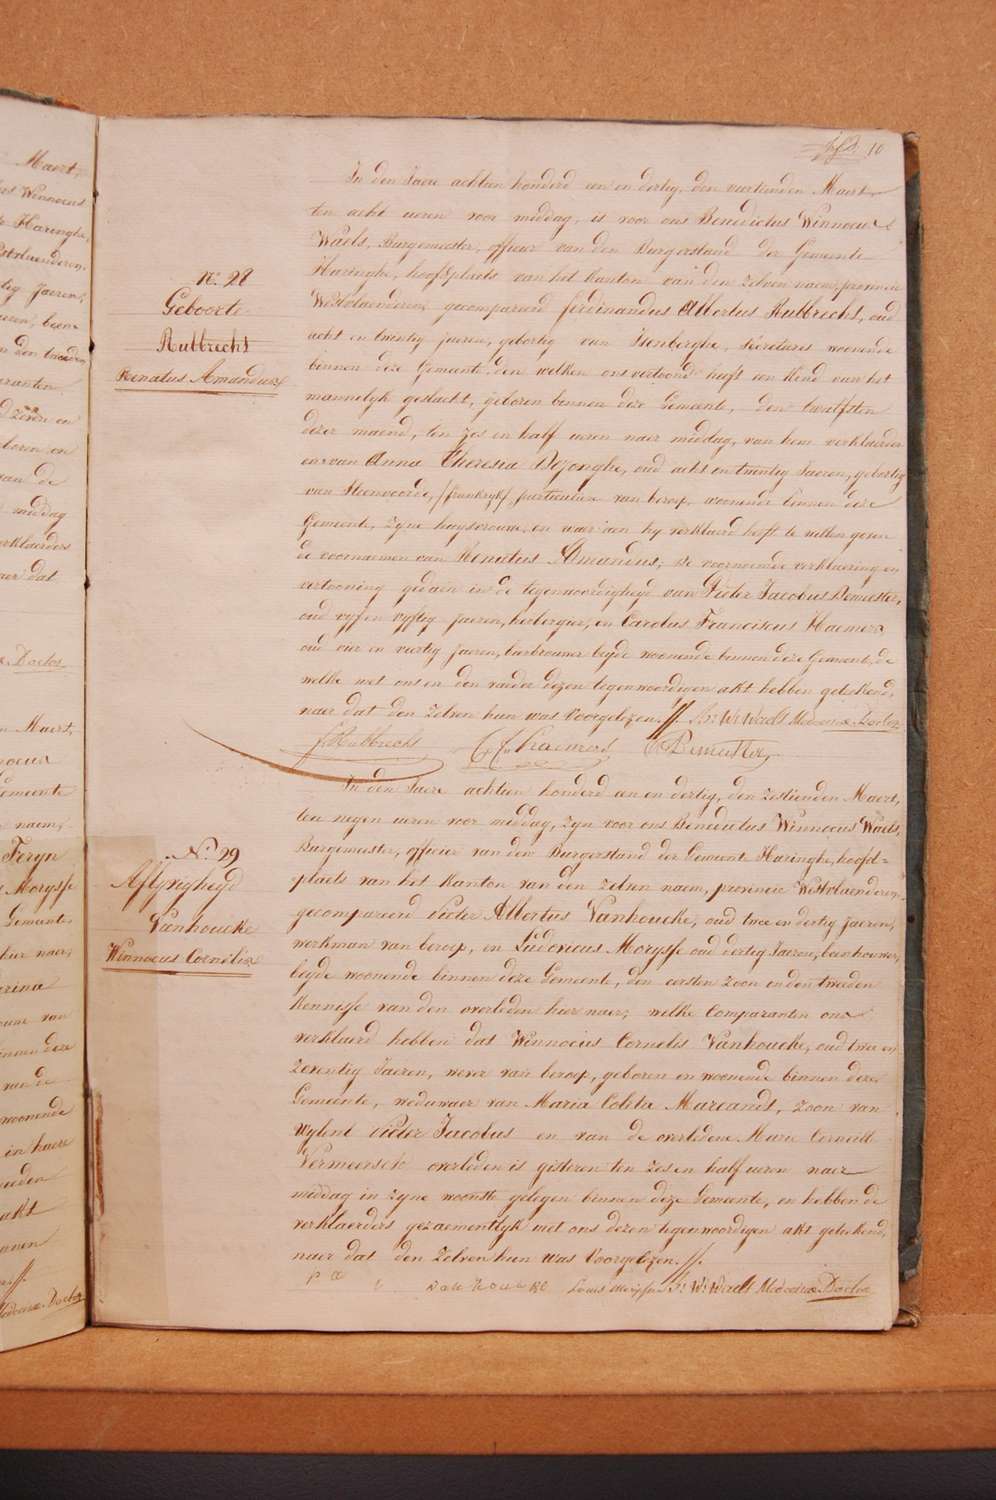 10
N.º 28
Geboorte
Rubbrecht
Renatus Amandus
In den Jaere achtien honderd een en dertig, den veertienden Maert,
ten acht ueren voor middag, is voor ons Benedictus Winnocus
Waels, Burgemeester, officier van den Burgerstand der Gemeente
Haringhe, hoofdplaets van het Canton van den zelven naem, provincie
Westvlaenderen, gecompareerd ferdinandus Albertus Rubbrecht, oud
acht en twintig jaeren, gebortig van Isenberghe, secretaris woonende
binnen deze Gemeente, den welken ons vertoond heeft een Kind van het
mannelyk geslacht, geboren binnen deze Gemeente, den twaelfsten
dezer maend, ten zes en half ueren naer middag, van hem verklaerder
en van Anna Theresia Dejonghe, oud acht en twintig Jaeren, gebortig
van Steenvoorde, (frankryk) particuliere van beroep, woonende binnen deze
Gemeente, zyne huysvrouw, en waer aen hy verklaerd heeft te willen geven
de voornaemen van Renatus Amandus; De voornoemde verklaering en
vertooning gedaen in de tegenwoordigheyd van Pieter Jacobus Demeester,
oud vyf en vyftig jaeren, herbergier, en Carolus Franciscus Kaemers,
oud vier en veertig jaeren, bierbrouwer beyde woonende binnen deze Gemeente, de
welke met ons en den vader dezen tegenwoordigen akt hebben geteekend,
naer dat den zelven hun was Voorgelezen. Bs: Ws Waels Medecinæ Doctor
f Rubbrecht P Demeester
N.º 29
Aflyvigheyd
Vanhoucke
Winnocus Cornelis
In den Jaere achtien honderd een en dertig, den zestienden Maert,
ten negen ueren voor middag, zyn voor ons Benedictus Winnocus Waels,
Burgemeester, officier van den Burgerstand der Gemeente Haringhe, hoofd=
plaets van het Kanton van den zelven naem, provincie Westvlaenderen,
gecompareerd Pieter Albertus Vanhoucke, oud twee en dertig jaeren,
werkman van beroep, en Ludovicus Morysse oud dertig Jaeren, landbouwer,
beyde woonende binnen deze Gemeente, den eersten zoon en den tweeden
Kennisse van den overleden hier naer; welke Comparanten ons
verklaerd hebben dat Winnocus Cornelis Vanhoucke, oud twee en
zeventig Jaeren, wever van beroep, geboren en woonende binnen deze
Gemeente, weduwaer van Maria Coleta Marcandt, zoon van
wylent Pieter Jacobus en van de overledene Marie Corneille
Vermeersch overleden is gisteren ten zes en half ueren naer
middag in zyne woonste gelegen binnen deze Gemeente, en hebben de
verklaerders gezaementlyk met ons dezen tegenwoordigen akt geteekend,
naer dat den zelven hun was Voorgelezen.
Louis Morysse Bs: Ws: Waels Medecinæ Doctor